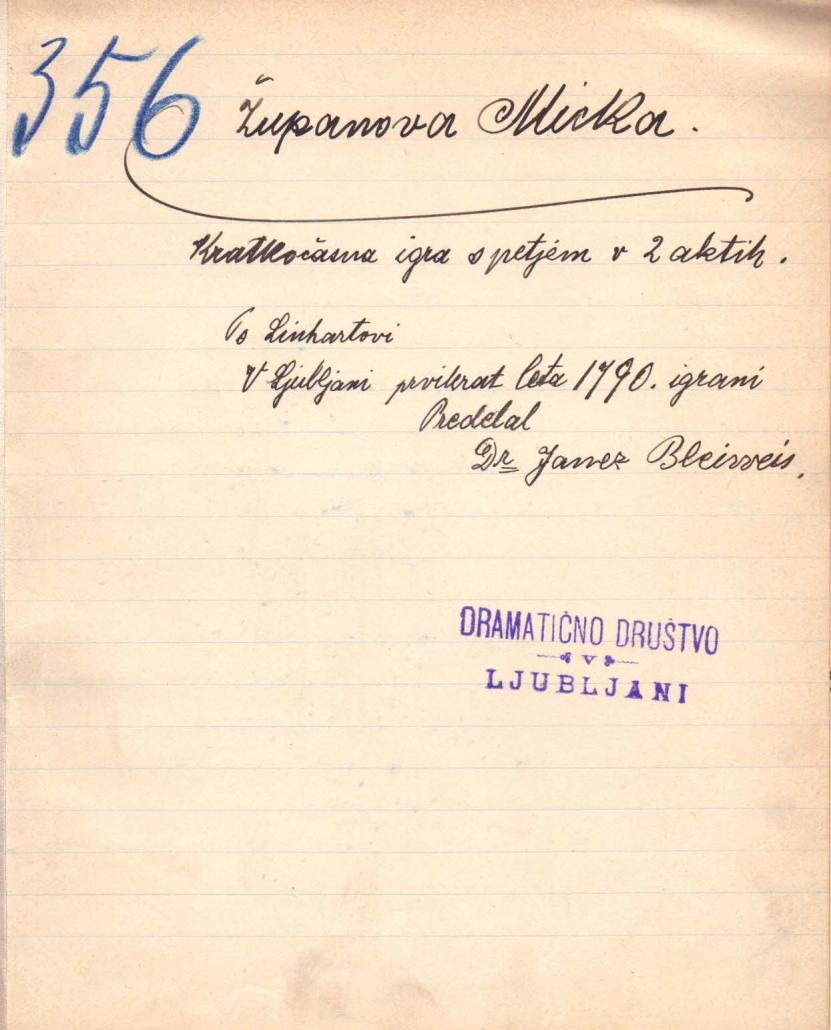 356
Županova Micka.
Kratkočasna igra s petjem v 2 aktih.
Po Linhartovi
V Ljubljani prvikrat leta 1790. igrani
Predelal
Dr Janez Bleiweis,
DRAMATIČNO DRUŠTVO
V
LJUBLJANI